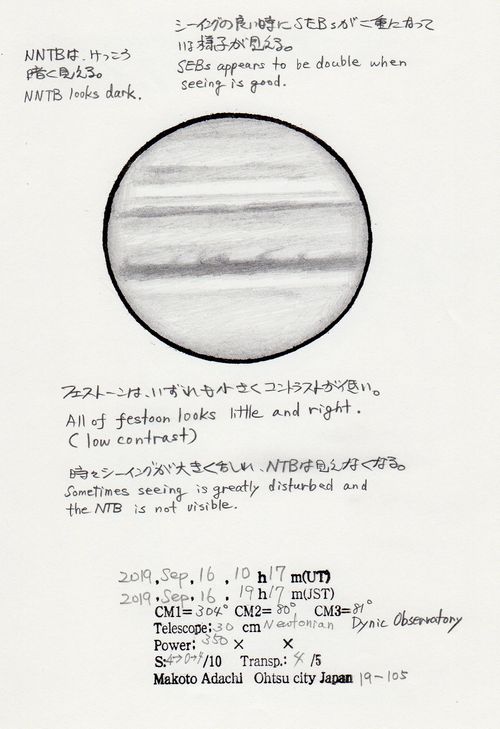 シーイングの良い時にSEBsが二重になって
いる様子が見える。
SEBs appears to be double when
seeing is good.
NNTBは、けっこう
暗く見える。
NNTB looks dark.
フェストーンは、いずれも小さくコントラストが低い。
All of festoon looks little and right.
( low contrast)
時々シーイングが大きくもしれ、NTBは見えなくなる。
Sometimes seeing is greatly disturbed and
the NTB is not visible.
2019, Sep, 16, 10 h 17 m(UT)
2019, Sep, 16, 19 h 17 m(JST)
CM1= 304° CM2= 80° CM3= 81°
Telescope: 30 cm Newtonian Dynic Observatory
Power: 350 × ×
S: 4→0→4/10 Transp.: 4 /5
Makoto Adachi Ohtsu city Japan 19-105